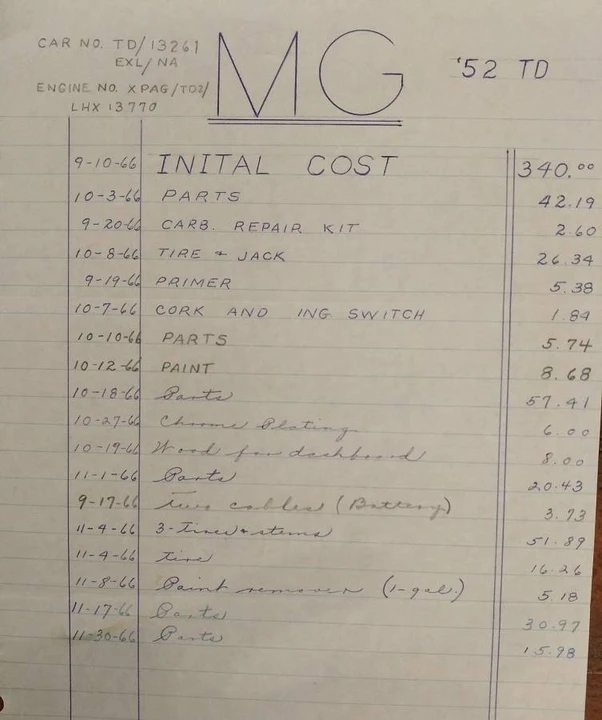 CAR NO. TD/13261
EXL/NA
ENGINE NO. XPAG/TD2/
LHX 13770
MG
'52 TD
9-10-66 INITAL COST 340.00
10-3-66 PARTS 42.19
9-20-66 CARB. REPAIR KIT 2.60
10-8-66 TIRE & JACK 26.34
9-19-66 PRIMER 5.38
10-7-66 CORK AND ING SWITCH 1.84
10-10-66 PARTS 5.74
10-12-66 PAINT 8.68
10-18-66 Parts 57.41
10-27-66 Chrome Plating 6.00
10-19-66 Wood for dashboard 8.00
11-1-66 Parts 20.43
9-17-66 Two cables (Battery) 3.73
11-4-66 3-Tires & stems 51.89
11-4-66 tire 16.26
11-8-66 Paint remover (1-gal.) 5.18
11-17-66 Parts 30.97
11-30-66 Parts 15.98